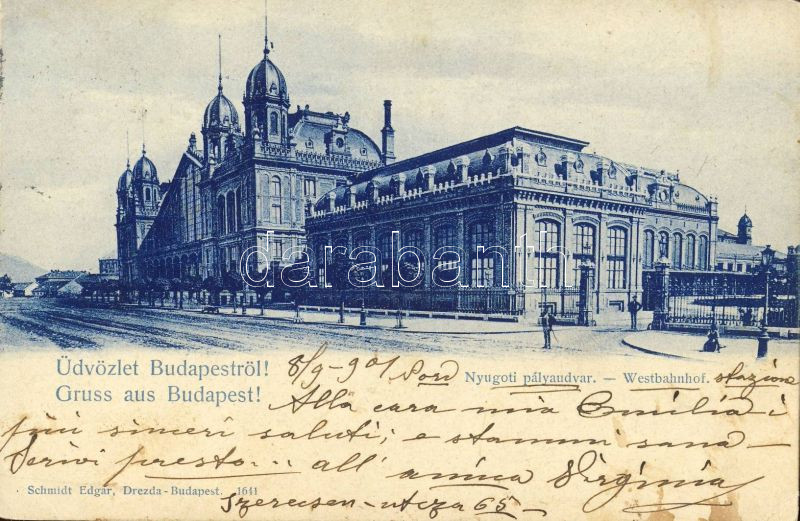 darabanth
Üdvözlet Budapestről! 8/9-901
Nyugoti pályaudvar. — Westbahnhof. stazione
Gruss aus Budapest!
Alla cara mia Emilia i
più sinceri saluti; e stammi sana-
Scrivi presto... all' amica Virginia
Schmidt Edgar, Drezda-Budapest. 1641
Szerecsen-utcza 65-